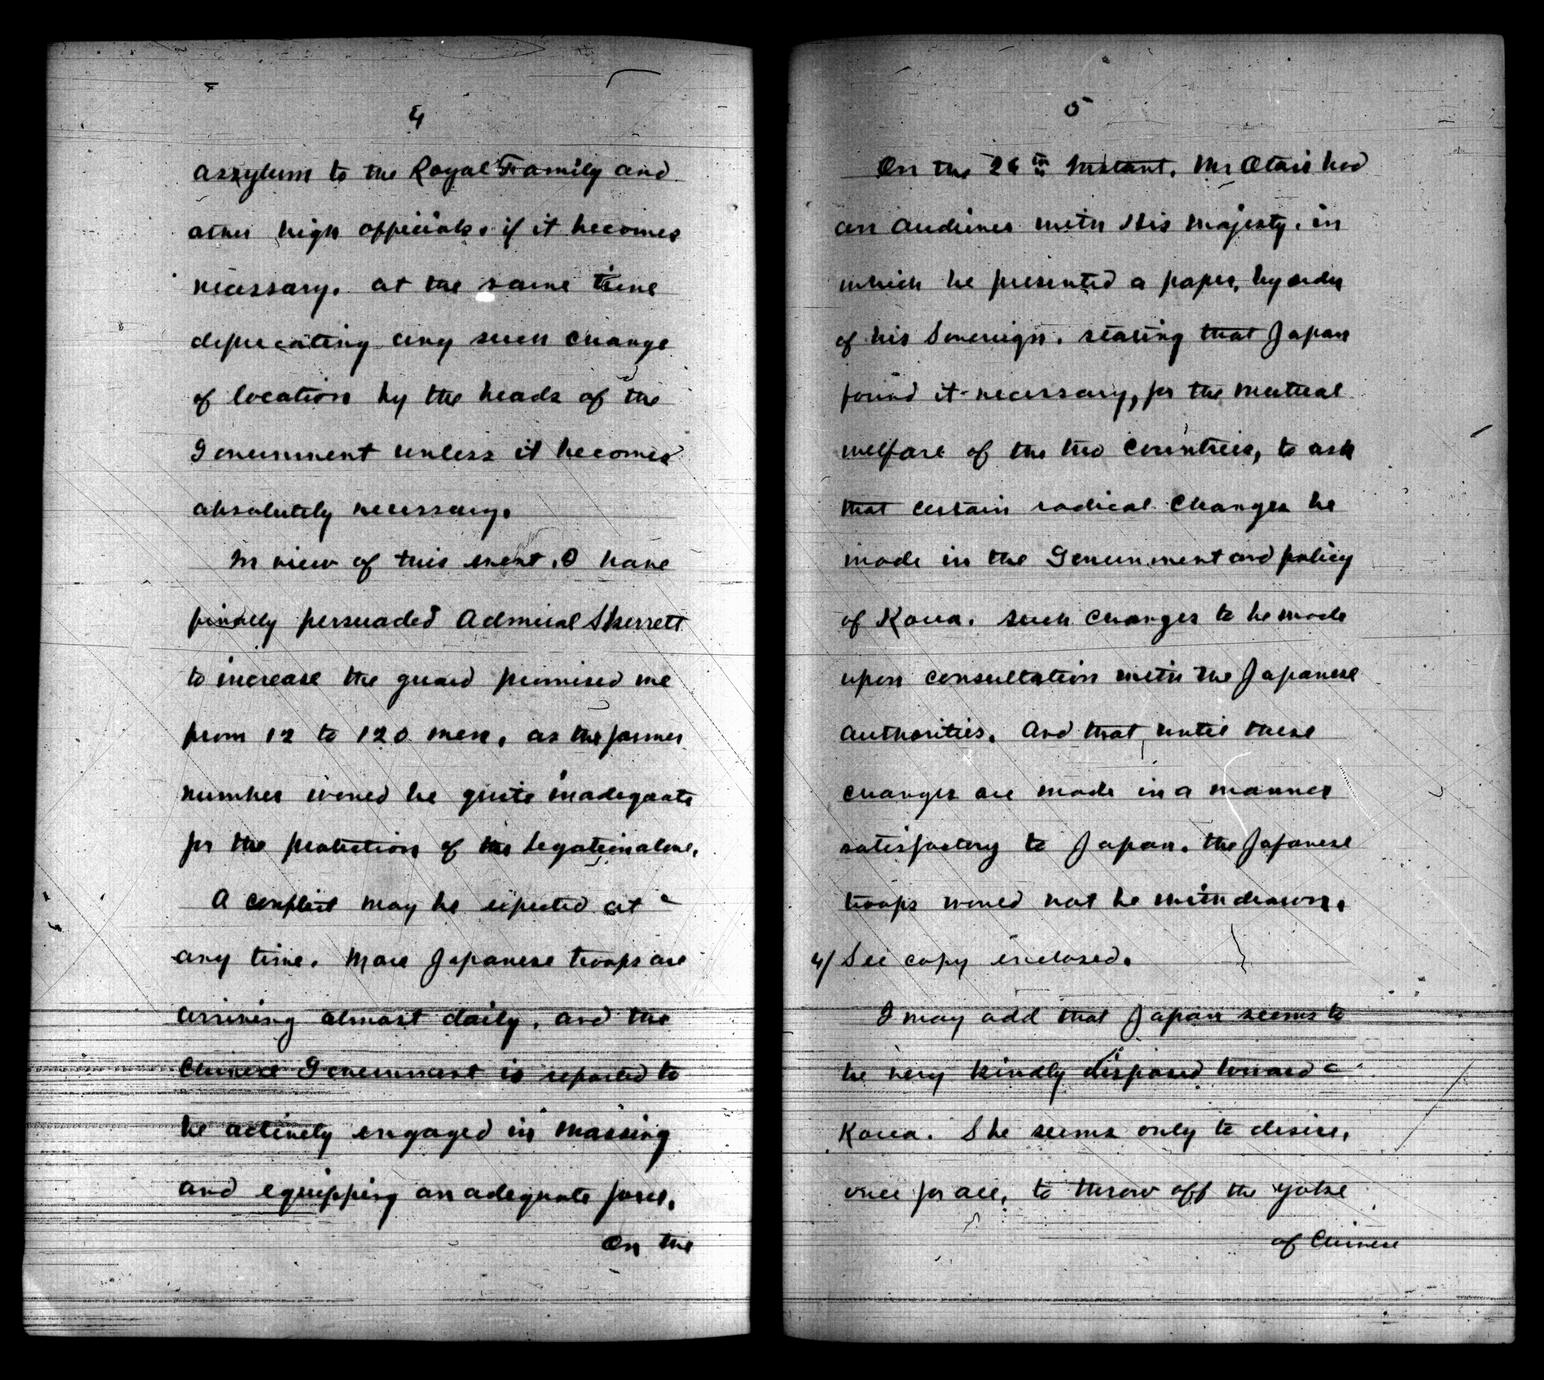 4
aszylum to the Royal Family and
other high officials, if it becomes
necessary, at the same time
deprecating any such change
of location by the heads of the
Government unless it becomes
absolutely necessary.
In view of this event, I have
finally persuaded Admiral Skerrett
to increase the guard promised me
from 12 to 120 men, as the former
number would be quite inadequate
for the protection of the Legation alone.
A conflict may be expected at
any time. More Japanese troops are
arriving almost daily, and the
Chinese Government is reported to
be actively engaged in massing
and equipping an adequate force.
On the
5
On the 26th instant, Mr Otori had
an audience with His Majesty, in
which he presented a paper, by order
of his Sovereign, stating that Japan
found it necessary, for the mutual
welfare of the two countries, to ask
that certain radical changes be
made in the Government and policy
of Korea, such changes to be made
upon consultation with the Japanese
authorities. And that, until these
changes are made in a manner
satisfactory to Japan, the Japanese
troops would not be withdrawn.
4/ See copy enclosed.
I may add that Japan seems to
be very kindly disposed toward
Korea. She seems only to desire,
once for all, to throw off the yoke
of Chinese